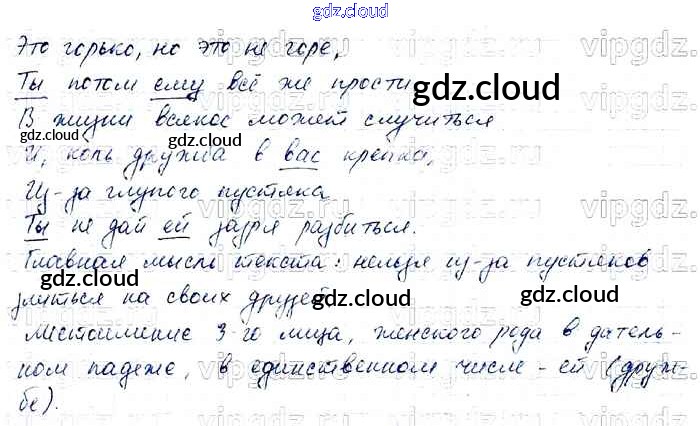 gdz.cloud
Это горько, но это не горе,
Ты потом ему всё же прости
gdz.cloud
В жизни всякое может случиться
gdz.cloud gdz.cloud
И, коль дружба в вас крепка,
Из-за глупого пустяка
Ты не дай ей зазря разбиться.
gdz.cloud
Главная мысль текста: нельзя из-за пустяков
gdz.cloud gdz.cloud
злиться на своих друзей.
gdz.cloud
Местоимение 3-го лица, женского рода в датель-
ном падеже, в единственном числе - ей (друж-
бе).
gdz.cloud gdz.cloud
vipgdz.ru